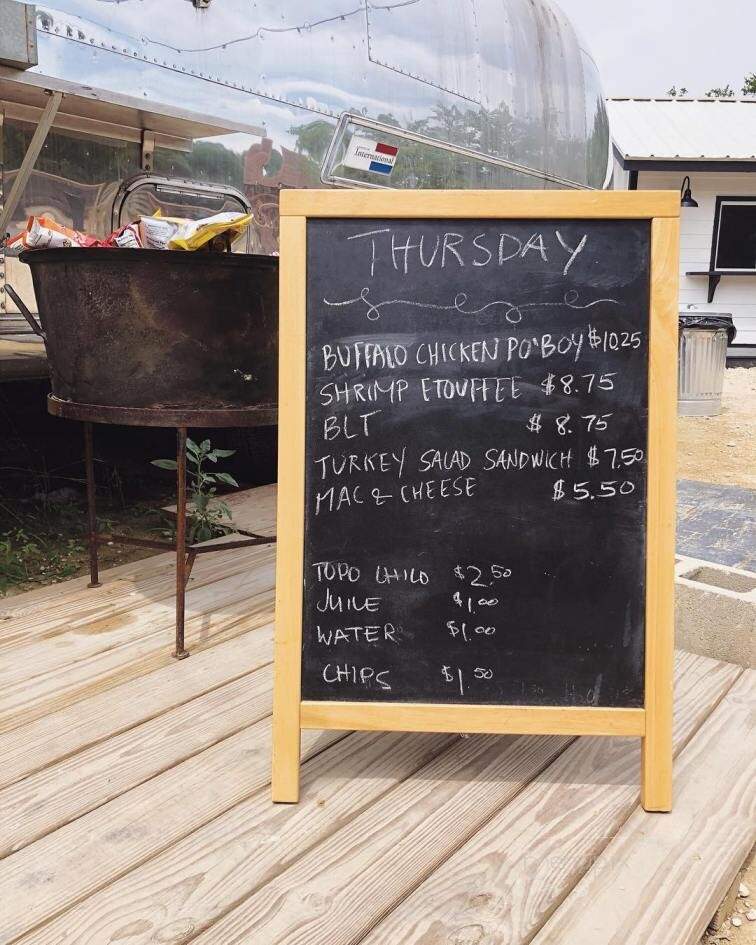 International
THURSDAY
BUFFALO CHICKEN PO'BOY $10.25
SHRIMP ETOUFFEE $8.75
BLT $8.75
TURKEY SALAD SANDWICH $7.50
MAC & CHEESE $5.50
TOPO CHICO $2.50
JUICE $1.00
WATER $1.00
CHIPS $1.50